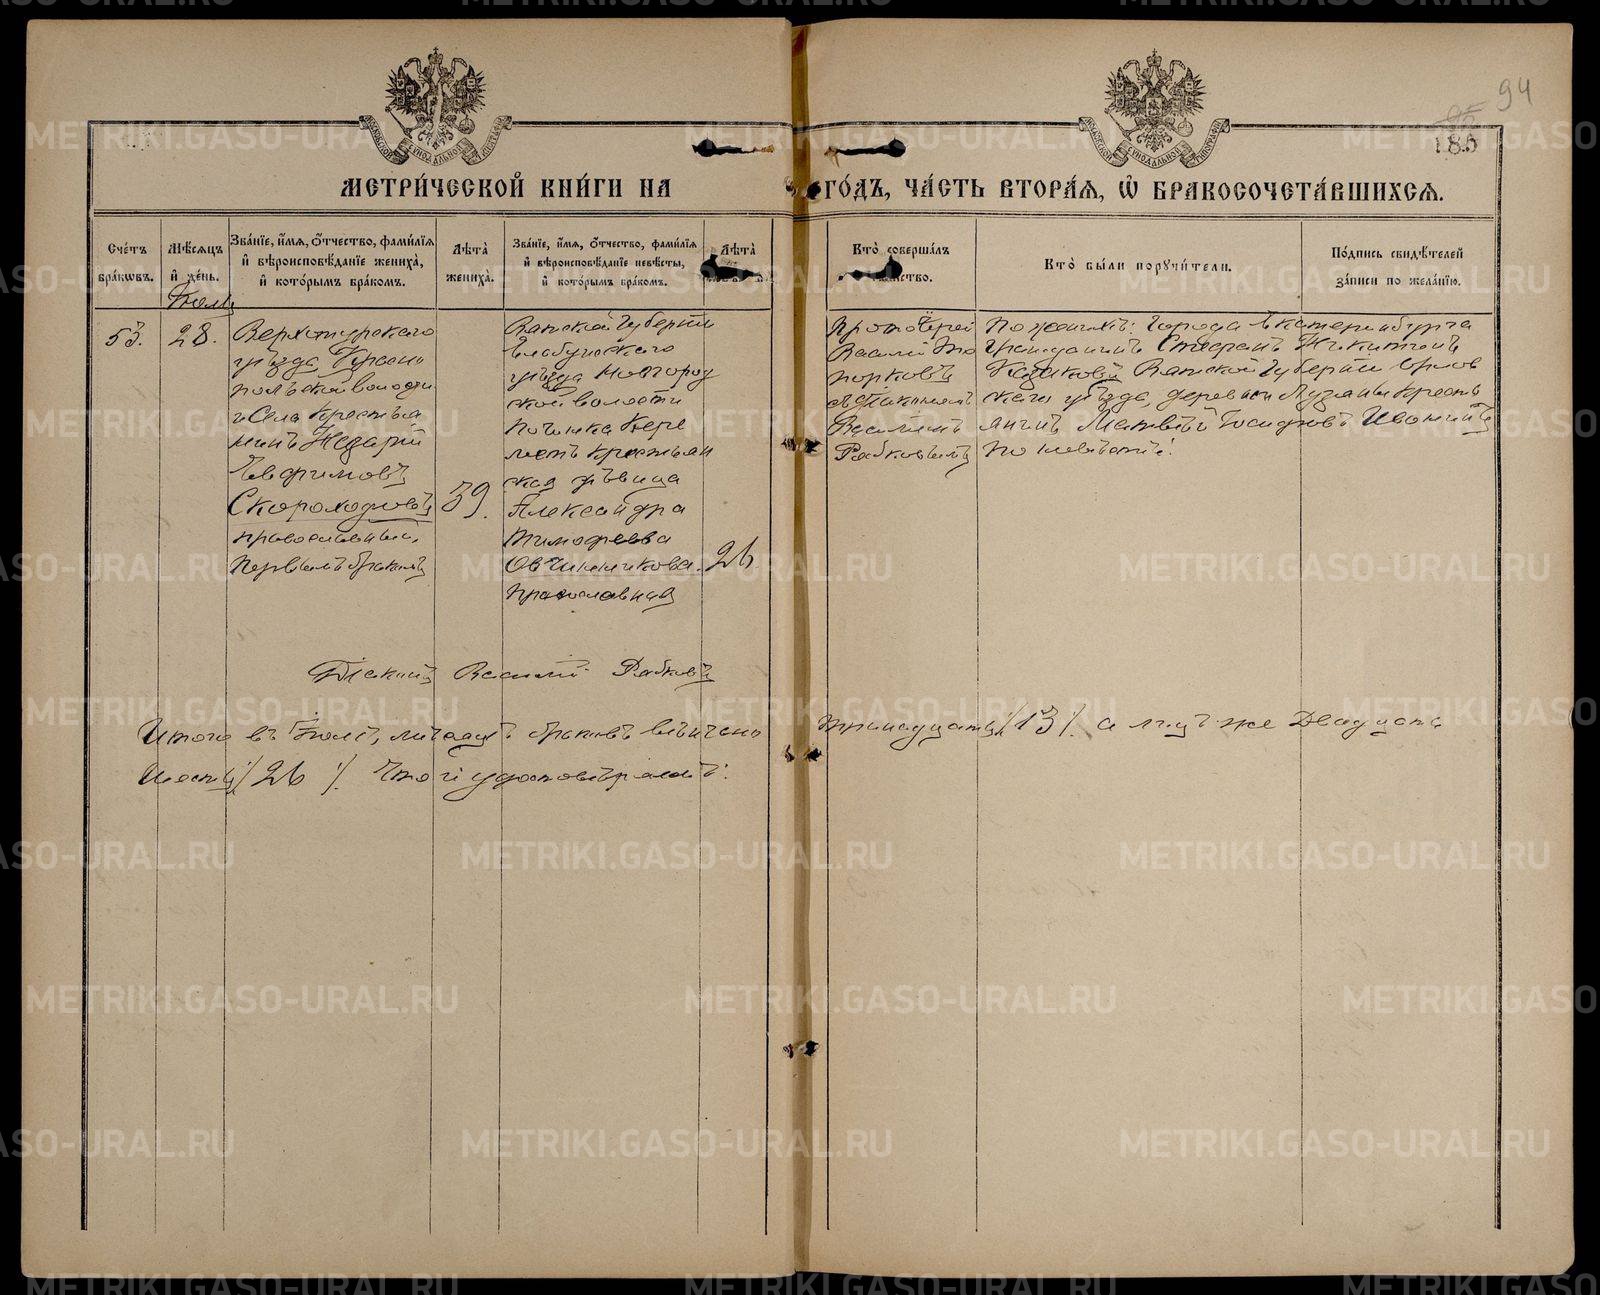 94
185
МЕТРИЧЕСКОЙ КНИГИ НА ГОДЪ, ЧАСТЬ ВТОРАЯ, Ѡ БРАКОСОЧЕТАВШИХСЯ.
Счетъ браковъ.
Мѣсяцъ и день.
Званіе, имя, отчество, фамилія и вѣроисповѣданіе жениха, и которымъ бракомъ.
Лѣта жениха.
Званіе, имя, отчество, фамилія и вѣроисповѣданіе невѣсты, и которымъ бракомъ.
Лѣта
Кто совершалъ
Кто были поручители.
Подпись свидѣтелей записи по желанію.
Іюль
53.
28.
Верхотурскаго
уѣзда
польской волости
и села крестья
нинъ Назарій
Евфимовъ
Скороходовъ
православный,
первымъ бракомъ
39.
Вятской губерніи
Елабужскаго
уѣзда Новгород
ской волости
починка Кере
меть крестьян
ская дѣвица
Александра
Тимофеева
Овчинникова.
православная
26.
Протоіерей
Василій То
порковъ
съ діакономъ
Василіемъ
Рабковымъ
По женихѣ: города Екатеринбурга
гражданинъ Стефанъ Никитинъ
Казаковъ Вятской губерніи Орлов
скаго уѣзда, деревни Лузяны кресть
янинъ Матвѣй Іосифовъ Ивонинъ
по невѣстѣ:
Діаконъ Василій Рабковъ
Итого въ Іюлѣ мѣсяцѣ браковъ вѣнчано тринадцать /13/. а лицъ же двадцать
шесть /26/. Что и удостовѣряемъ:
METRIKI.GASO-URAL.RU